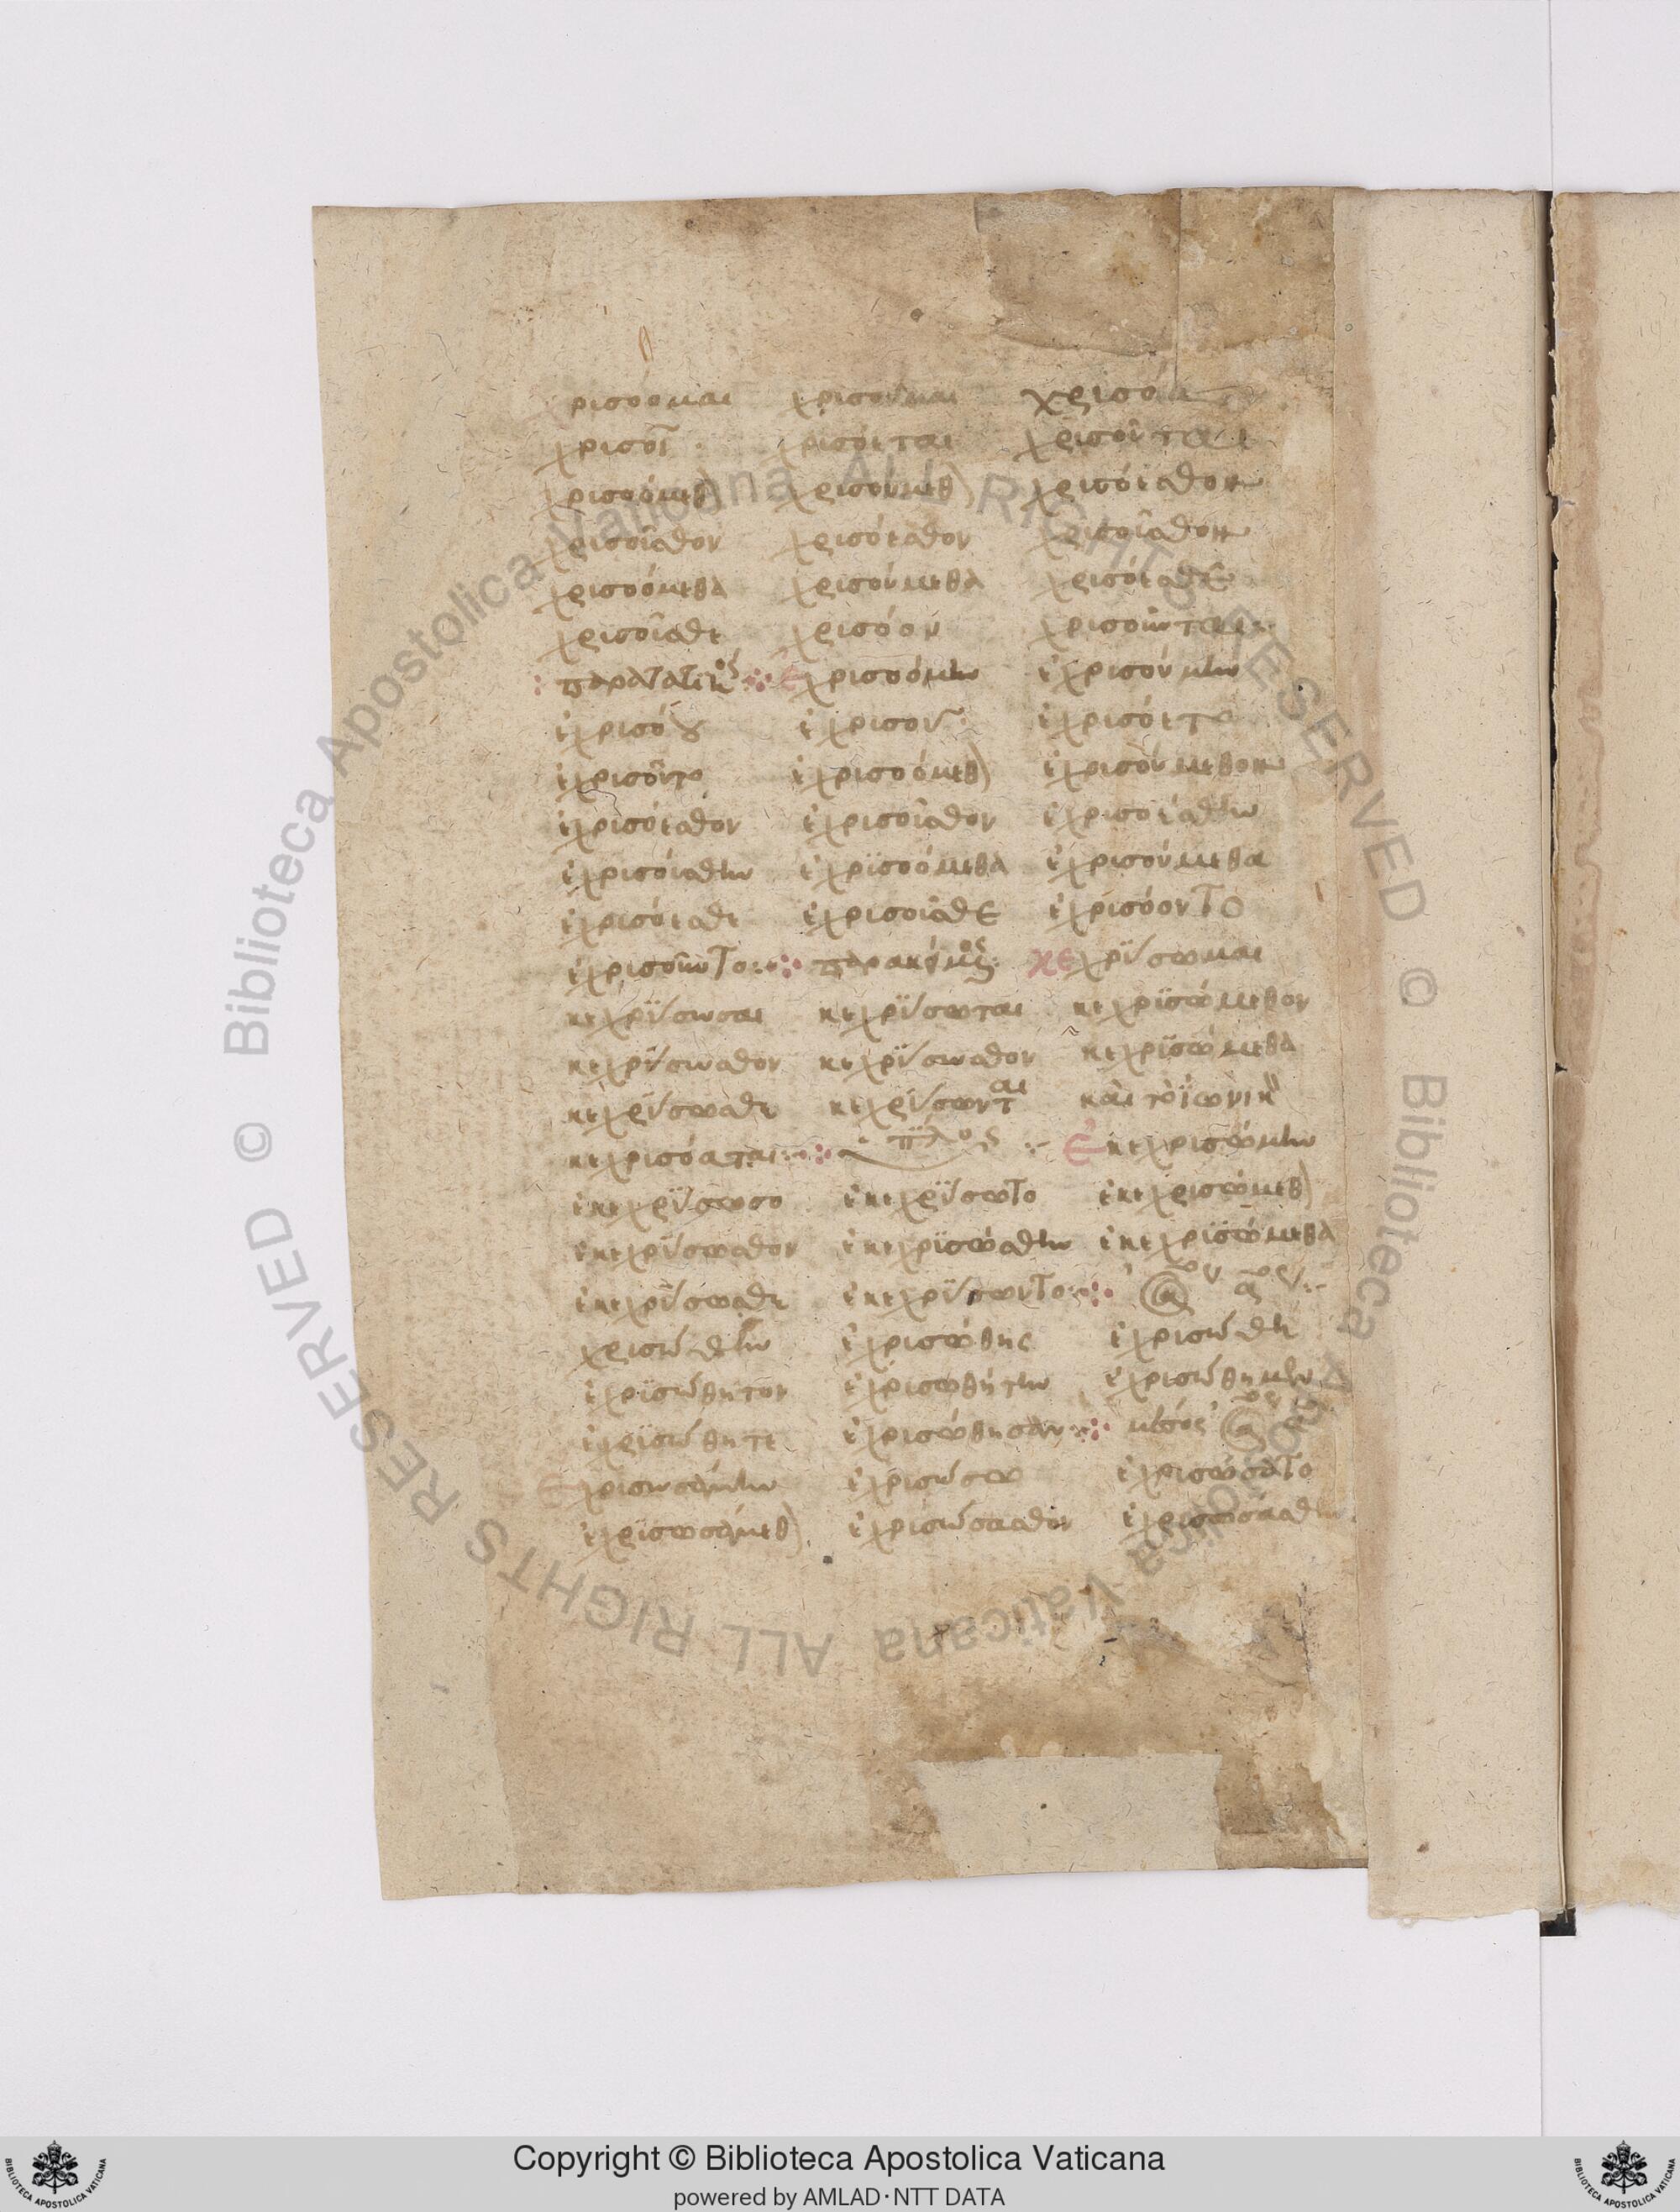 χρισοομαι χρισοῦμαι χρισόη
χρισοῖ χρισόεται χρισοῦται
χρισοόμεθον χρισούμεθον χρισόεσθον
χρισοῖσθον χρισόεσθον χρισοῖσθον
χρισοόμεθα χρισούμεθα χρισόεσθε
χρισοῖσθε χρισόον χρισοῦνται
παρατατικὸς ἐχρισοόμην ἐχρισούμην
ἐχρισόου ἐχρισοῦ ἐχρισόετο
ἐχρισοῦτο ἐχρισοόμεθον ἐχρισούμεθον
ἐχρισόεσθον ἐχρισοῖσθον ἐχρισοέσθην
ἐχρισοίσθην ἐχρϊσοόμεθα ἐχρισούμεθα
ἐχρισόεσθε ἐχρισοῖσθε ἐχρισόοντο
ἐχρισοῦντο παρακείμενος κεχρΐσωμαι
κεχρΐσωσαι κεχρΐσωται κεχρϊσώμεθον
κεχρΐσωσθον κεχρΐσωσθον κεχρϊσώμεθα
κεχρΐσωσθε κεχρΐσωνται καὶ τὸ ϊωνικὸν
κεχρισόαται ἐκεχρισώμην
ἐκεχρΐσωσο ἐκεχρΐσωτο ἐκεχρισώμεθον
ἐκεχρΐσωσθον ἐκεχρϊσώσθην ἐκεχρϊσώμεθα
ἐκεχρΐσωσθε ἐκεχρΐσωντο
χρισώθην ἐχρισώθης ἐχρισώθη
ἐχρϊσώθητον ἐχρισωθήτην ἐχρισώθημεν
ἐχρϊσώθητε ἐχρισώθησαν μέσος
Ἐχρισωσάμην ἐχρισώσω ἐχρισώσατο
ἐχρϊσωσάμεθον ἐχρισώσασθον ἐχρισωσάσθην
Copyright © Biblioteca Apostolica Vaticana
powered by AMLAD·NTT DATA